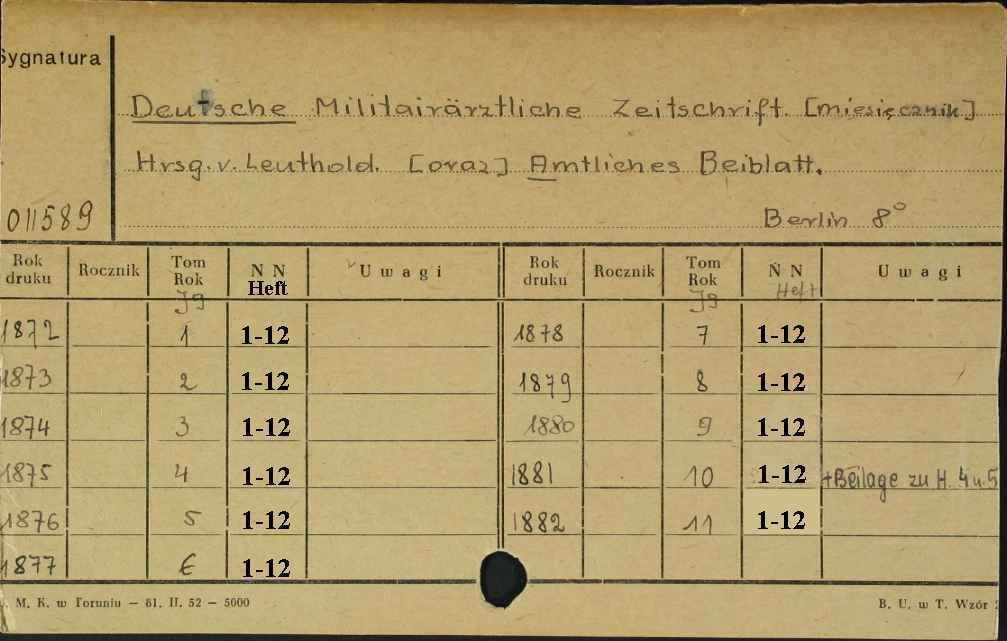 Sygnatura
Deutsche Militairärztliche Zeitschrift. [miesięcznik]
Hrsg. v. Leuthold. [oraz] Amtliches Beiblatt.
011589
Berlin 8°
Rok druku Rocznik Tom Rok Jg N N Heft Uwagi Rok druku Rocznik Tom Rok Jg N N Heft Uwagi
1872 1 1-12 1878 7 1-12
1873 2 1-12 1879 8 1-12
1874 3 1-12 1880 9 1-12
1875 4 1-12 1881 10 1-12 +Beilage zu H. 4 u. 5
1876 5 1-12 1882 11 1-12
1877 6 1-12
M. K. w Toruniu – 61. II. 52 – 5000 B. U. w T. Wzór